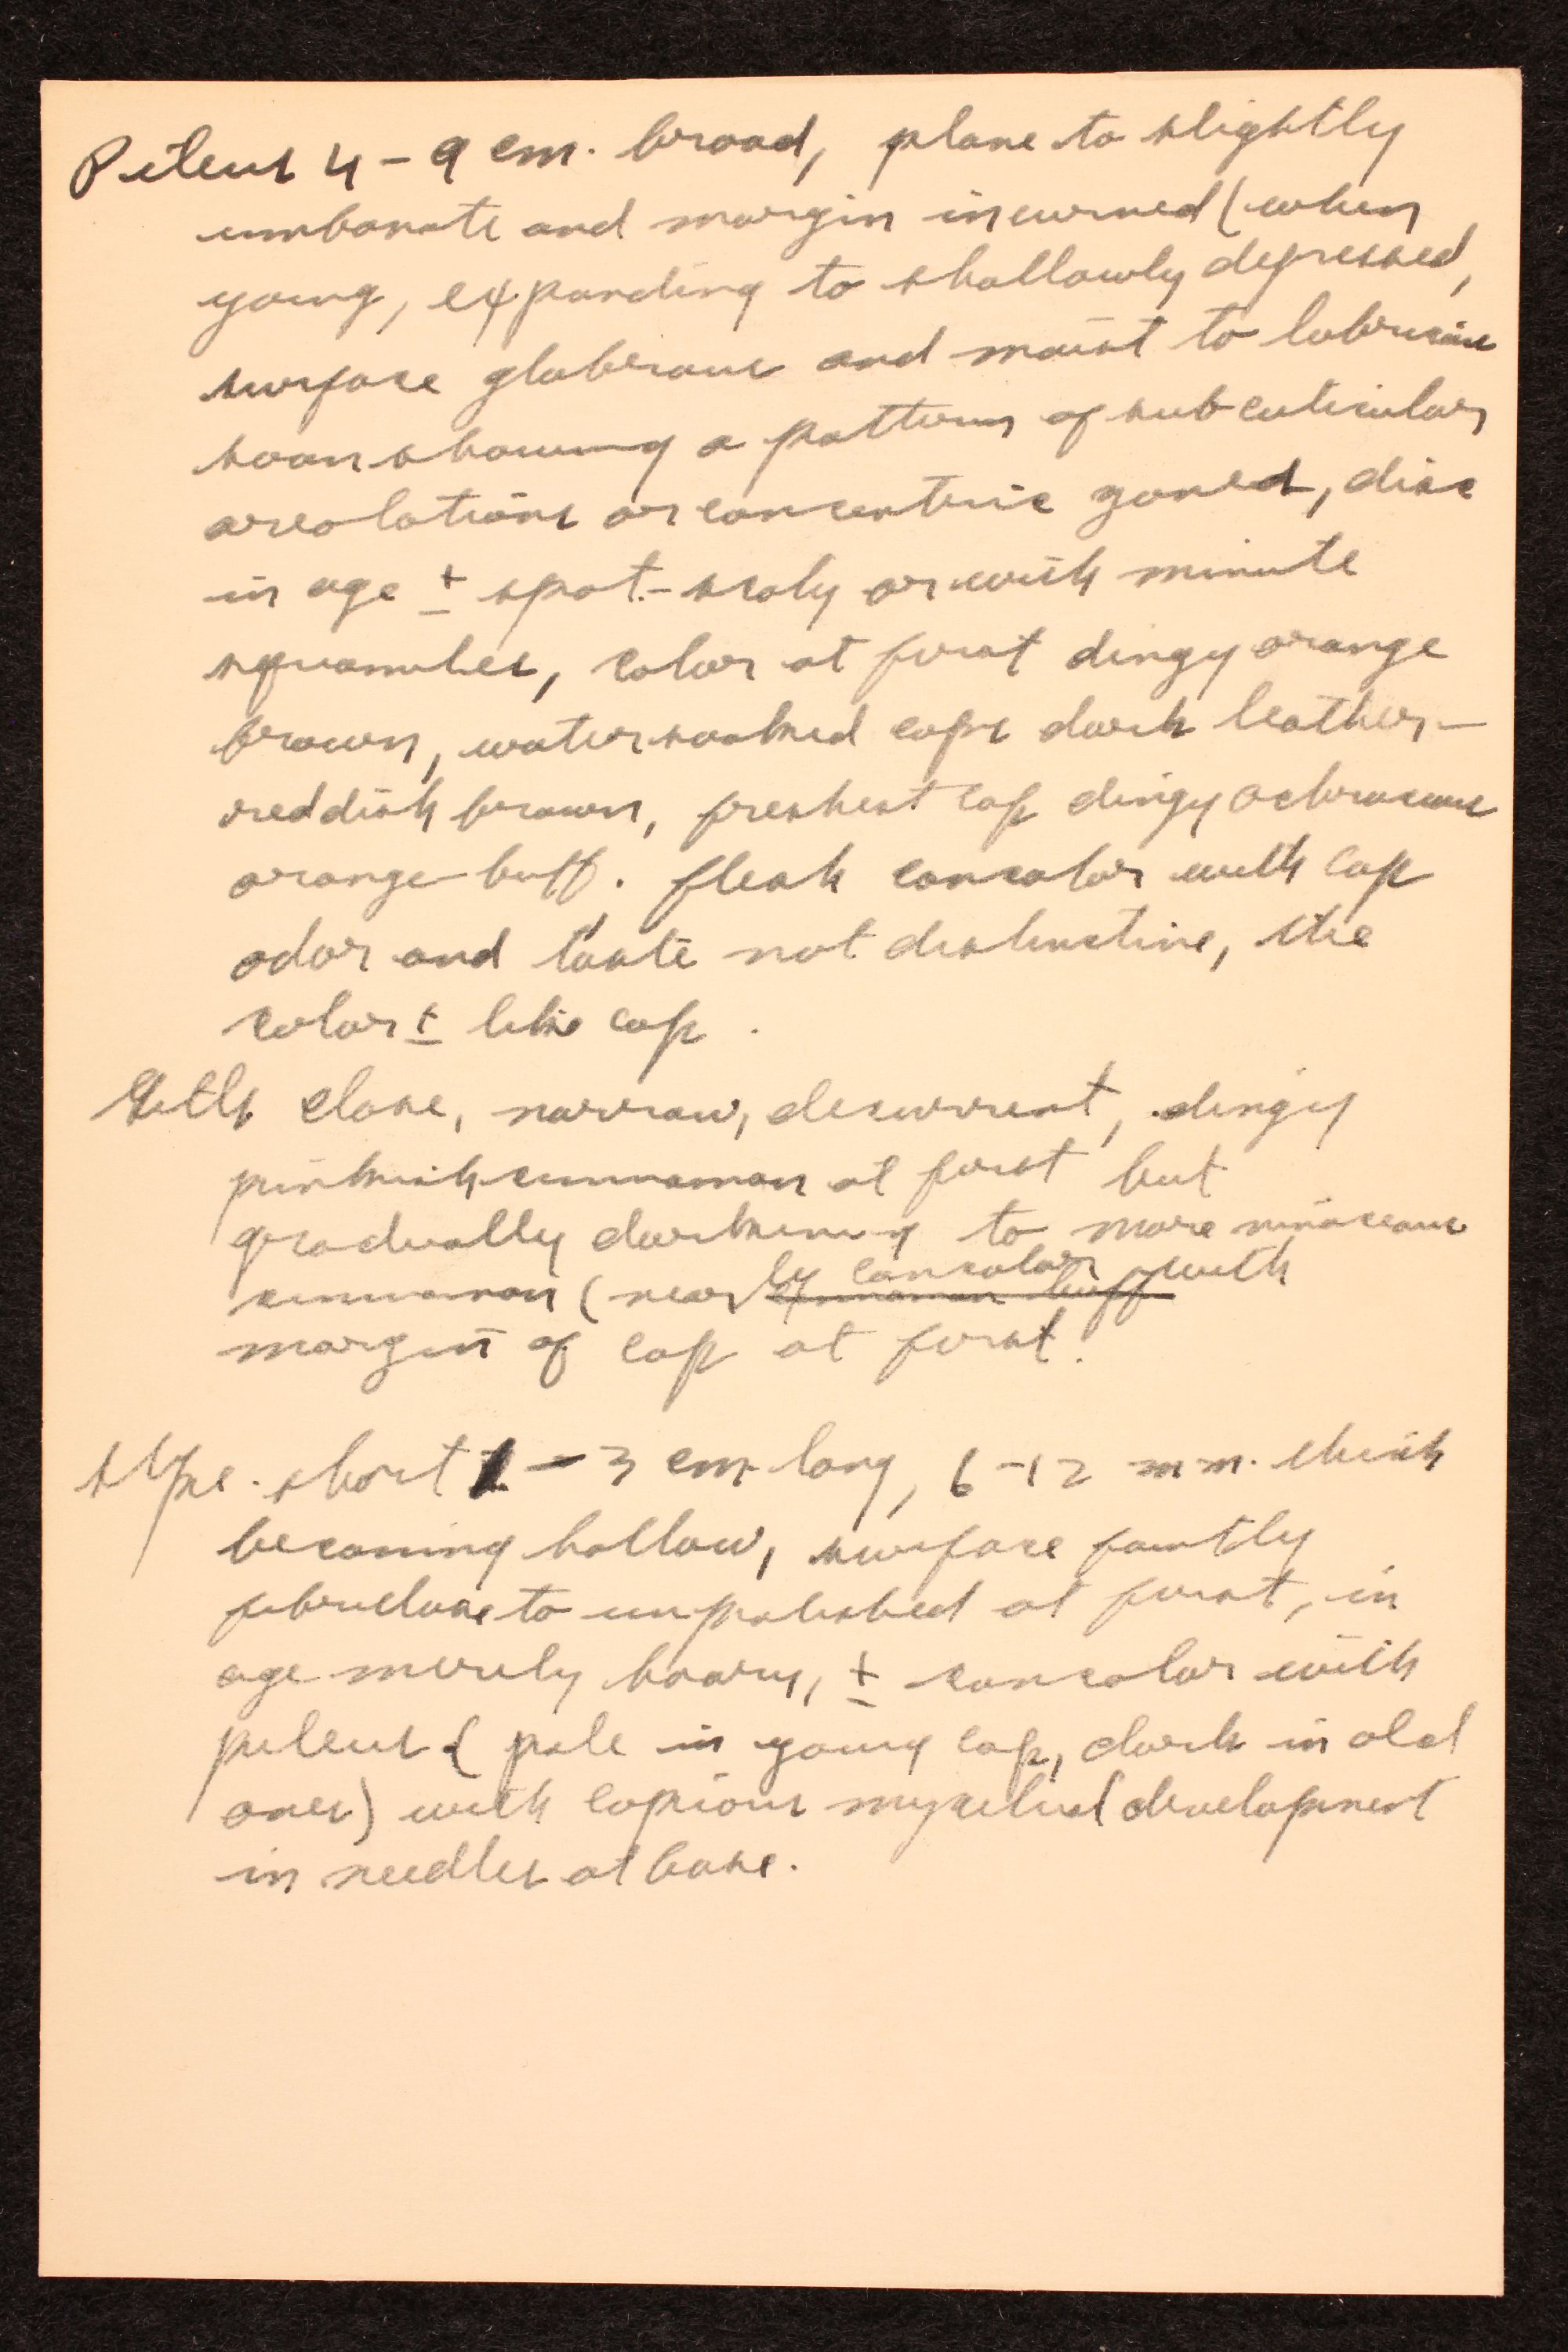 Pileus 4-9 cm. broad, plane to slightly
umbonate and margin incurved (when
young, expanding to shallowly depressed,
surface glabrous and moist to lubricous
soon showing a pattern of subcuticular
areolations or concentric zoned, disc
in age ± spot-scaly or with minute
squamules, color at first dingy orange
brown, watersoaked caps dark leather-
reddish brown, freshest cap dingy ochraceous
orange-buff. flesh concolor with cap
odor and taste not distinctive,
color ± like cap.
Gills close, narrow, decurrent, dingy
pinkish cinnamon at first but
gradually darkening to more vinaceous
cinnamon (nearly concolor with
cinnamon buff
margin of cap at first.
stipe short 1-3 cm long, 6-12 mm. thick
becoming hollow, surface faintly
fibrillose to unpolished at first, in
age merely hoary, ± concolor with
pileus (pale in young cap, dark in old
ones) with copious mycelial development
in needles at base.